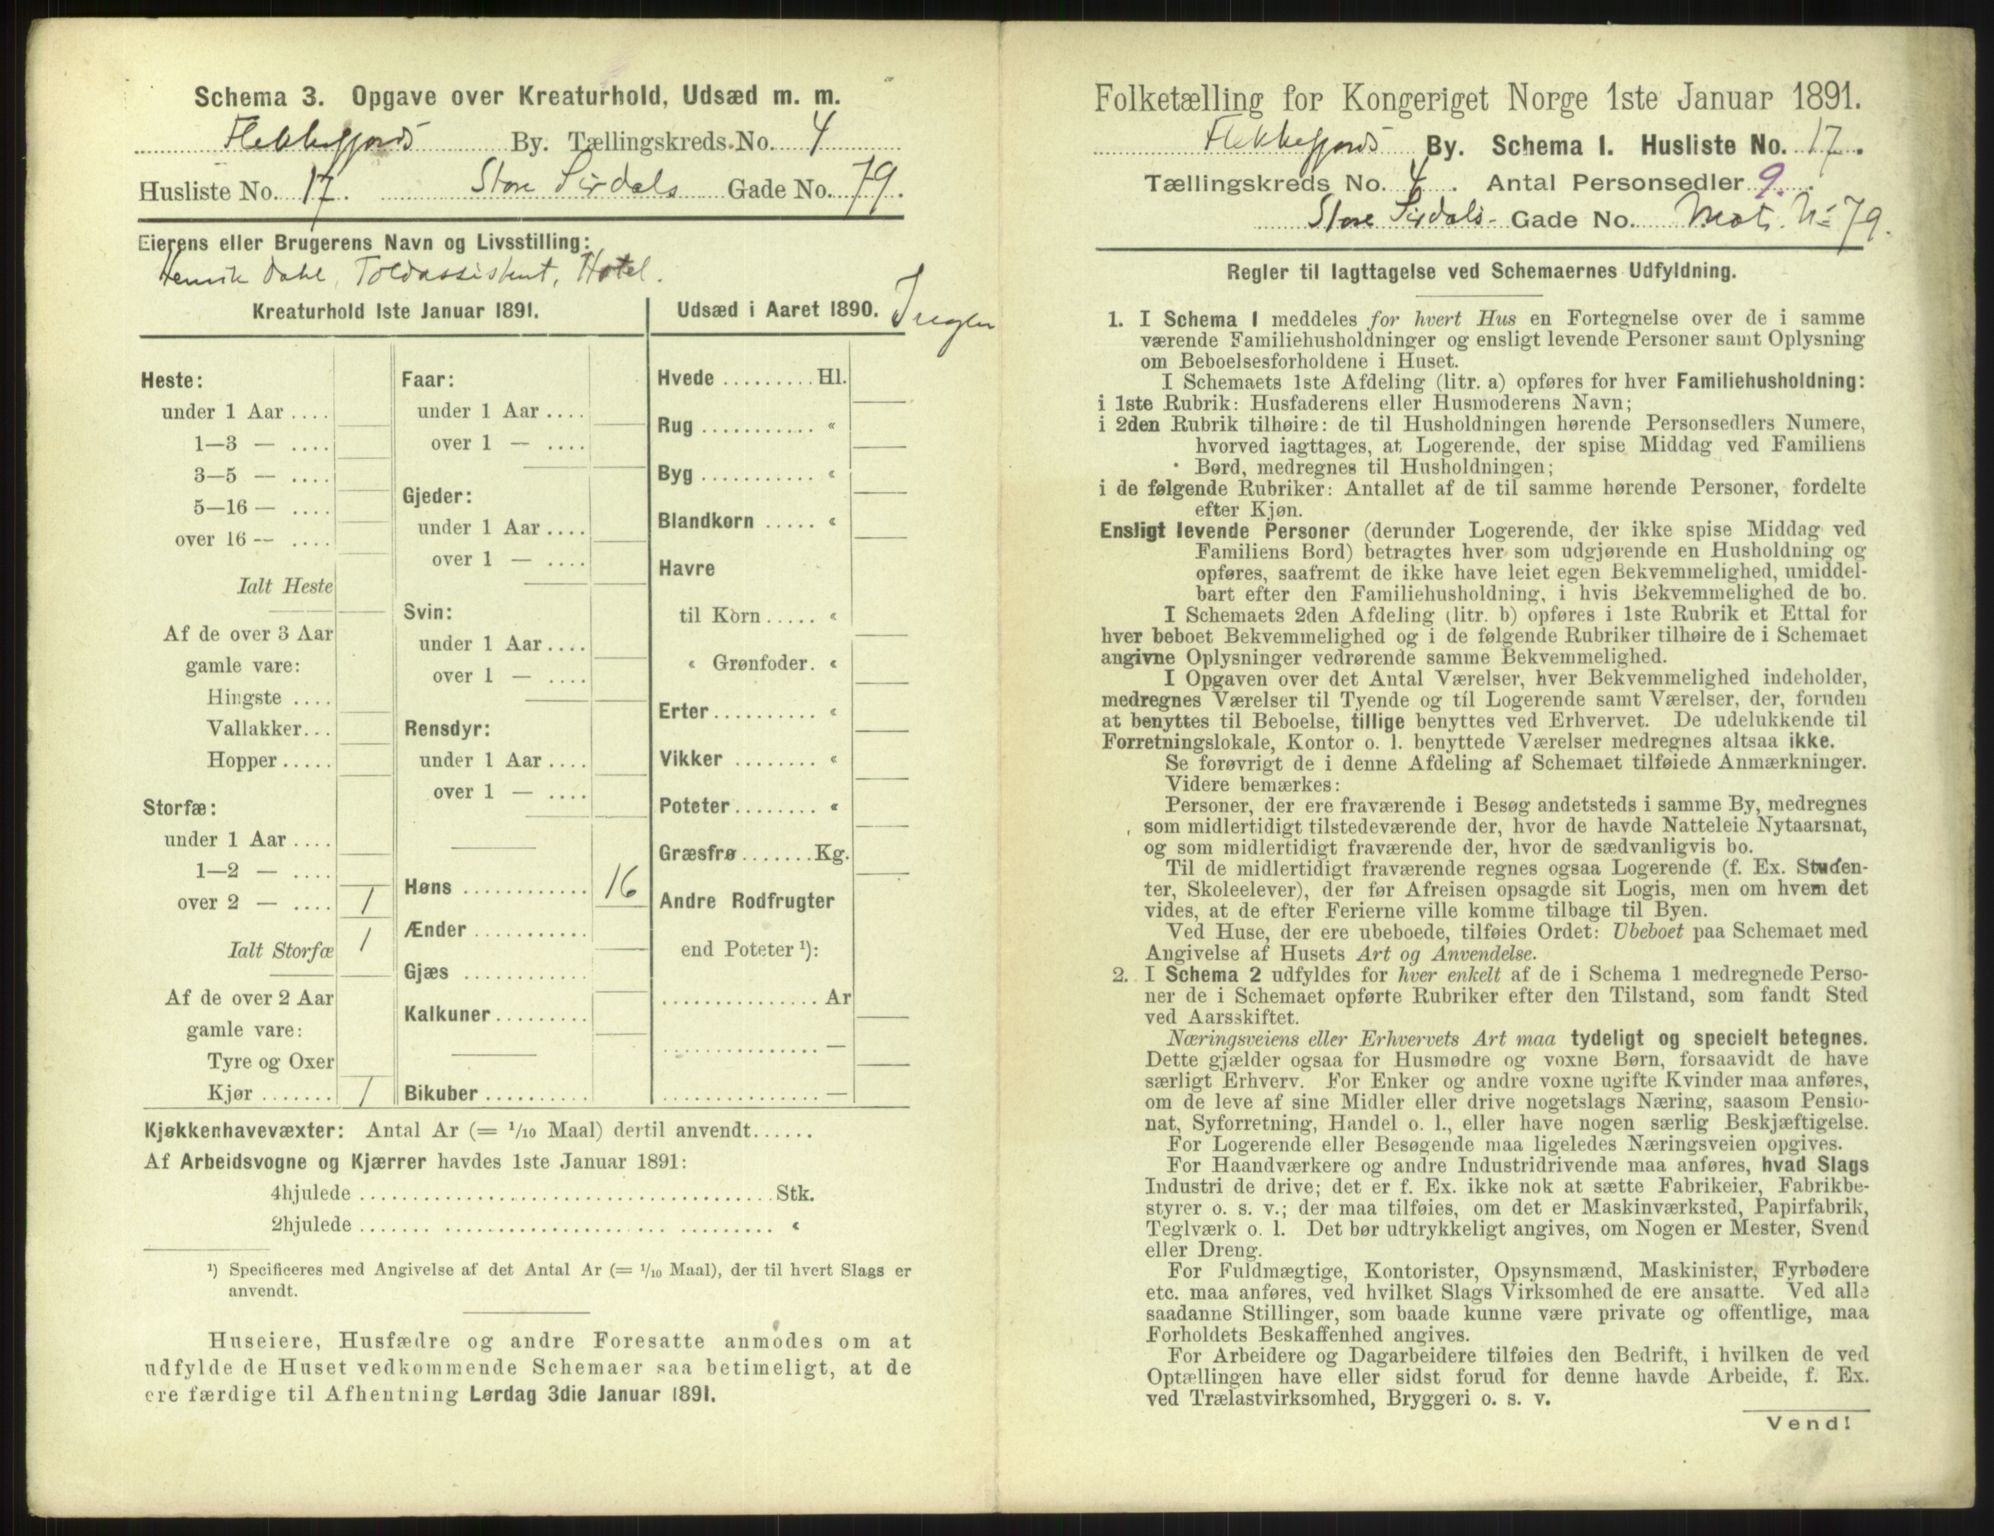 Schema 3. Opgave over Kreaturhold, Udsæd m. m.
Flekkefjords By. Tællingskreds No. 4
Husliste No. 17. Store Sirdals Gade No. 79.
Eierens eller Brugerens Navn og Livsstilling:
Henrik Dahl, Toldassistent, Hotel.
Kreaturhold 1ste Januar 1891.
Heste:
under 1 Aar ....
1—3 — ....
3—5 — ....
5—16 — ....
over 16 — ....
Ialt Heste
Af de over 3 Aar
gamle vare:
Hingste ....
Vallakker...
Hopper.....
Storfæ:
under 1 Aar ....
1—2 — ....
over 2 — .... 1
Ialt Storfæ 1
Af de over 2 Aar
gamle vare:
Tyre og Oxer
Kjør ....... 1
Faar:
under 1 Aar ....
over 1 — ....
Gjeder:
under 1 Aar ....
over 1 — ....
Svin:
under 1 Aar ....
over 1 — ....
Rensdyr:
under 1 Aar ....
over 1 — ....
Høns ............ 16
Ænder ...........
Gjæs ............
Kalkuner.........
Bikuber ..........
Udsæd i Aaret 1890. Ingen
Hvede ......... Hl.
Rug ........... «
Byg ........... «
Blandkorn ..... «
Havre
til Korn ..... «
« Grønfoder. «
Erter .......... «
Vikker ........ «
Poteter ........ «
Græsfrø ....... Kg.
Andre Rodfrugter
end Poteter ¹):
............... Ar
............... —
............... —
Kjøkkenhavevæxter: Antal Ar (= 1/10 Maal) dertil anvendt......
Af Arbeidsvogne og Kjærrer havdes 1ste Januar 1891:
4hjulede ....................................... Stk.
2hjulede ....................................... «
¹) Specificeres med Angivelse af det Antal Ar (= 1/10 Maal), der til hvert Slags er
anvendt.
Huseiere, Husfædre og andre Foresatte anmodes om at
udfylde de Huset vedkommende Schemaer saa betimeligt, at de
ere færdige til Afhentning Lørdag 3die Januar 1891.
Folketælling for Kongeriget Norge 1ste Januar 1891.
Flekkefjords By. Schema I. Husliste No. 17.
Tællingskreds No. 4. Antal Personsedler 9.
Store Sirdals- Gade No. Mat. No 79.
Regler til Iagttagelse ved Schemaernes Udfyldning.
1. I Schema I meddeles for hvert Hus en Fortegnelse over de i samme
værende Familiehusholdninger og ensligt levende Personer samt Oplysning
om Beboelsesforholdene i Huset.
I Schemaets 1ste Afdeling (litr. a) opføres for hver Familiehusholdning:
i 1ste Rubrik: Husfaderens eller Husmoderens Navn;
i 2den Rubrik tilhøire: de til Husholdningen hørende Personsedlers Numere,
hvorved iagttages, at Logerende, der spise Middag ved Familiens
Bord, medregnes til Husholdningen;
i de følgende Rubriker: Antallet af de til samme hørende Personer, fordelte
efter Kjøn.
Ensligt levende Personer (derunder Logerende, der ikke spise Middag ved
Familiens Bord) betragtes hver som udgjørende en Husholdning og
opføres, saafremt de ikke have leiet egen Bekvemmelighed, umiddel-
bart efter den Familiehusholdning, i hvis Bekvemmelighed de bo.
I Schemaets 2den Afdeling (litr. b) opføres i 1ste Rubrik et Ettal for
hver beboet Bekvemmelighed og i de følgende Rubriker tilhøire de i Schemaet
angivne Oplysninger vedrørende samme Bekvemmelighed.
I Opgaven over det Antal Værelser, hver Bekvemmelighed indeholder,
medregnes Værelser til Tyende og til Logerende samt Værelser, der, foruden
at benyttes til Beboelse, tillige benyttes ved Erhvervet. De udelukkende til
Forretningslokale, Kontor o. l. benyttede Værelser medregnes altsaa ikke.
Se forøvrigt de i denne Afdeling af Schemaet tilføiede Anmærkninger.
Videre bemærkes:
Personer, der ere fraværende i Besøg andetsteds i samme By, medregnes
som midlertidigt tilstedeværende der, hvor de havde Natteleie Nytaarsnat,
og som midlertidigt fraværende der, hvor de sædvanligvis bo.
Til de midlertidigt fraværende regnes ogsaa Logerende (f. Ex. Studen-
ter, Skoleelever), der før Afreisen opsagde sit Logis, men om hvem det
vides, at de efter Ferierne ville komme tilbage til Byen.
Ved Huse, der ere ubeboede, tilføies Ordet: Ubeboet paa Schemaet med
Angivelse af Husets Art og Anvendelse.
2. I Schema 2 udfyldes for hver enkelt af de i Schema 1 medregnede Perso-
ner de i Schemaet opførte Rubriker efter den Tilstand, som fandt Sted
ved Aarsskiftet.
Næringsveiens eller Erhvervets Art maa tydeligt og specielt betegnes.
Dette gjælder ogsaa for Husmødre og voxne Børn, forsaavidt de have
særligt Erhverv. For Enker og andre voxne ugifte Kvinder maa anføres,
om de leve af sine Midler eller drive nogetslags Næring, saasom Pensio-
nat, Syforretning, Handel o. l., eller have nogen særlig Beskjæftigelse.
For Logerende eller Besøgende maa ligeledes Næringsveien opgives.
For Haandværkere og andre Industridrivende maa anføres, hvad Slags
Industri de drive; det er f. Ex. ikke nok at sætte Fabrikeier, Fabrikbe-
styrer o. s. v.; der maa tilføies, om det er Maskinværksted, Papirfabrik,
Teglværk o. l. Det bør udtrykkeligt angives, om Nogen er Mester, Svend
eller Dreng.
For Fuldmægtige, Kontorister, Opsynsmænd, Maskinister, Fyrbødere
etc. maa anføres, ved hvilket Slags Virksomhed de ere ansatte. Ved alle
saadanne Stillinger, som baade kunne være private og offentlige, maa
Forholdets Beskaffenhed angives.
For Arbeidere og Dagarbeidere tilføies den Bedrift, i hvilken de ved
Optællingen have eller sidst forud for denne havde Arbeide, f. Ex.
ved Trælastvirksomhed, Bryggeri o. s. v.
Vend!